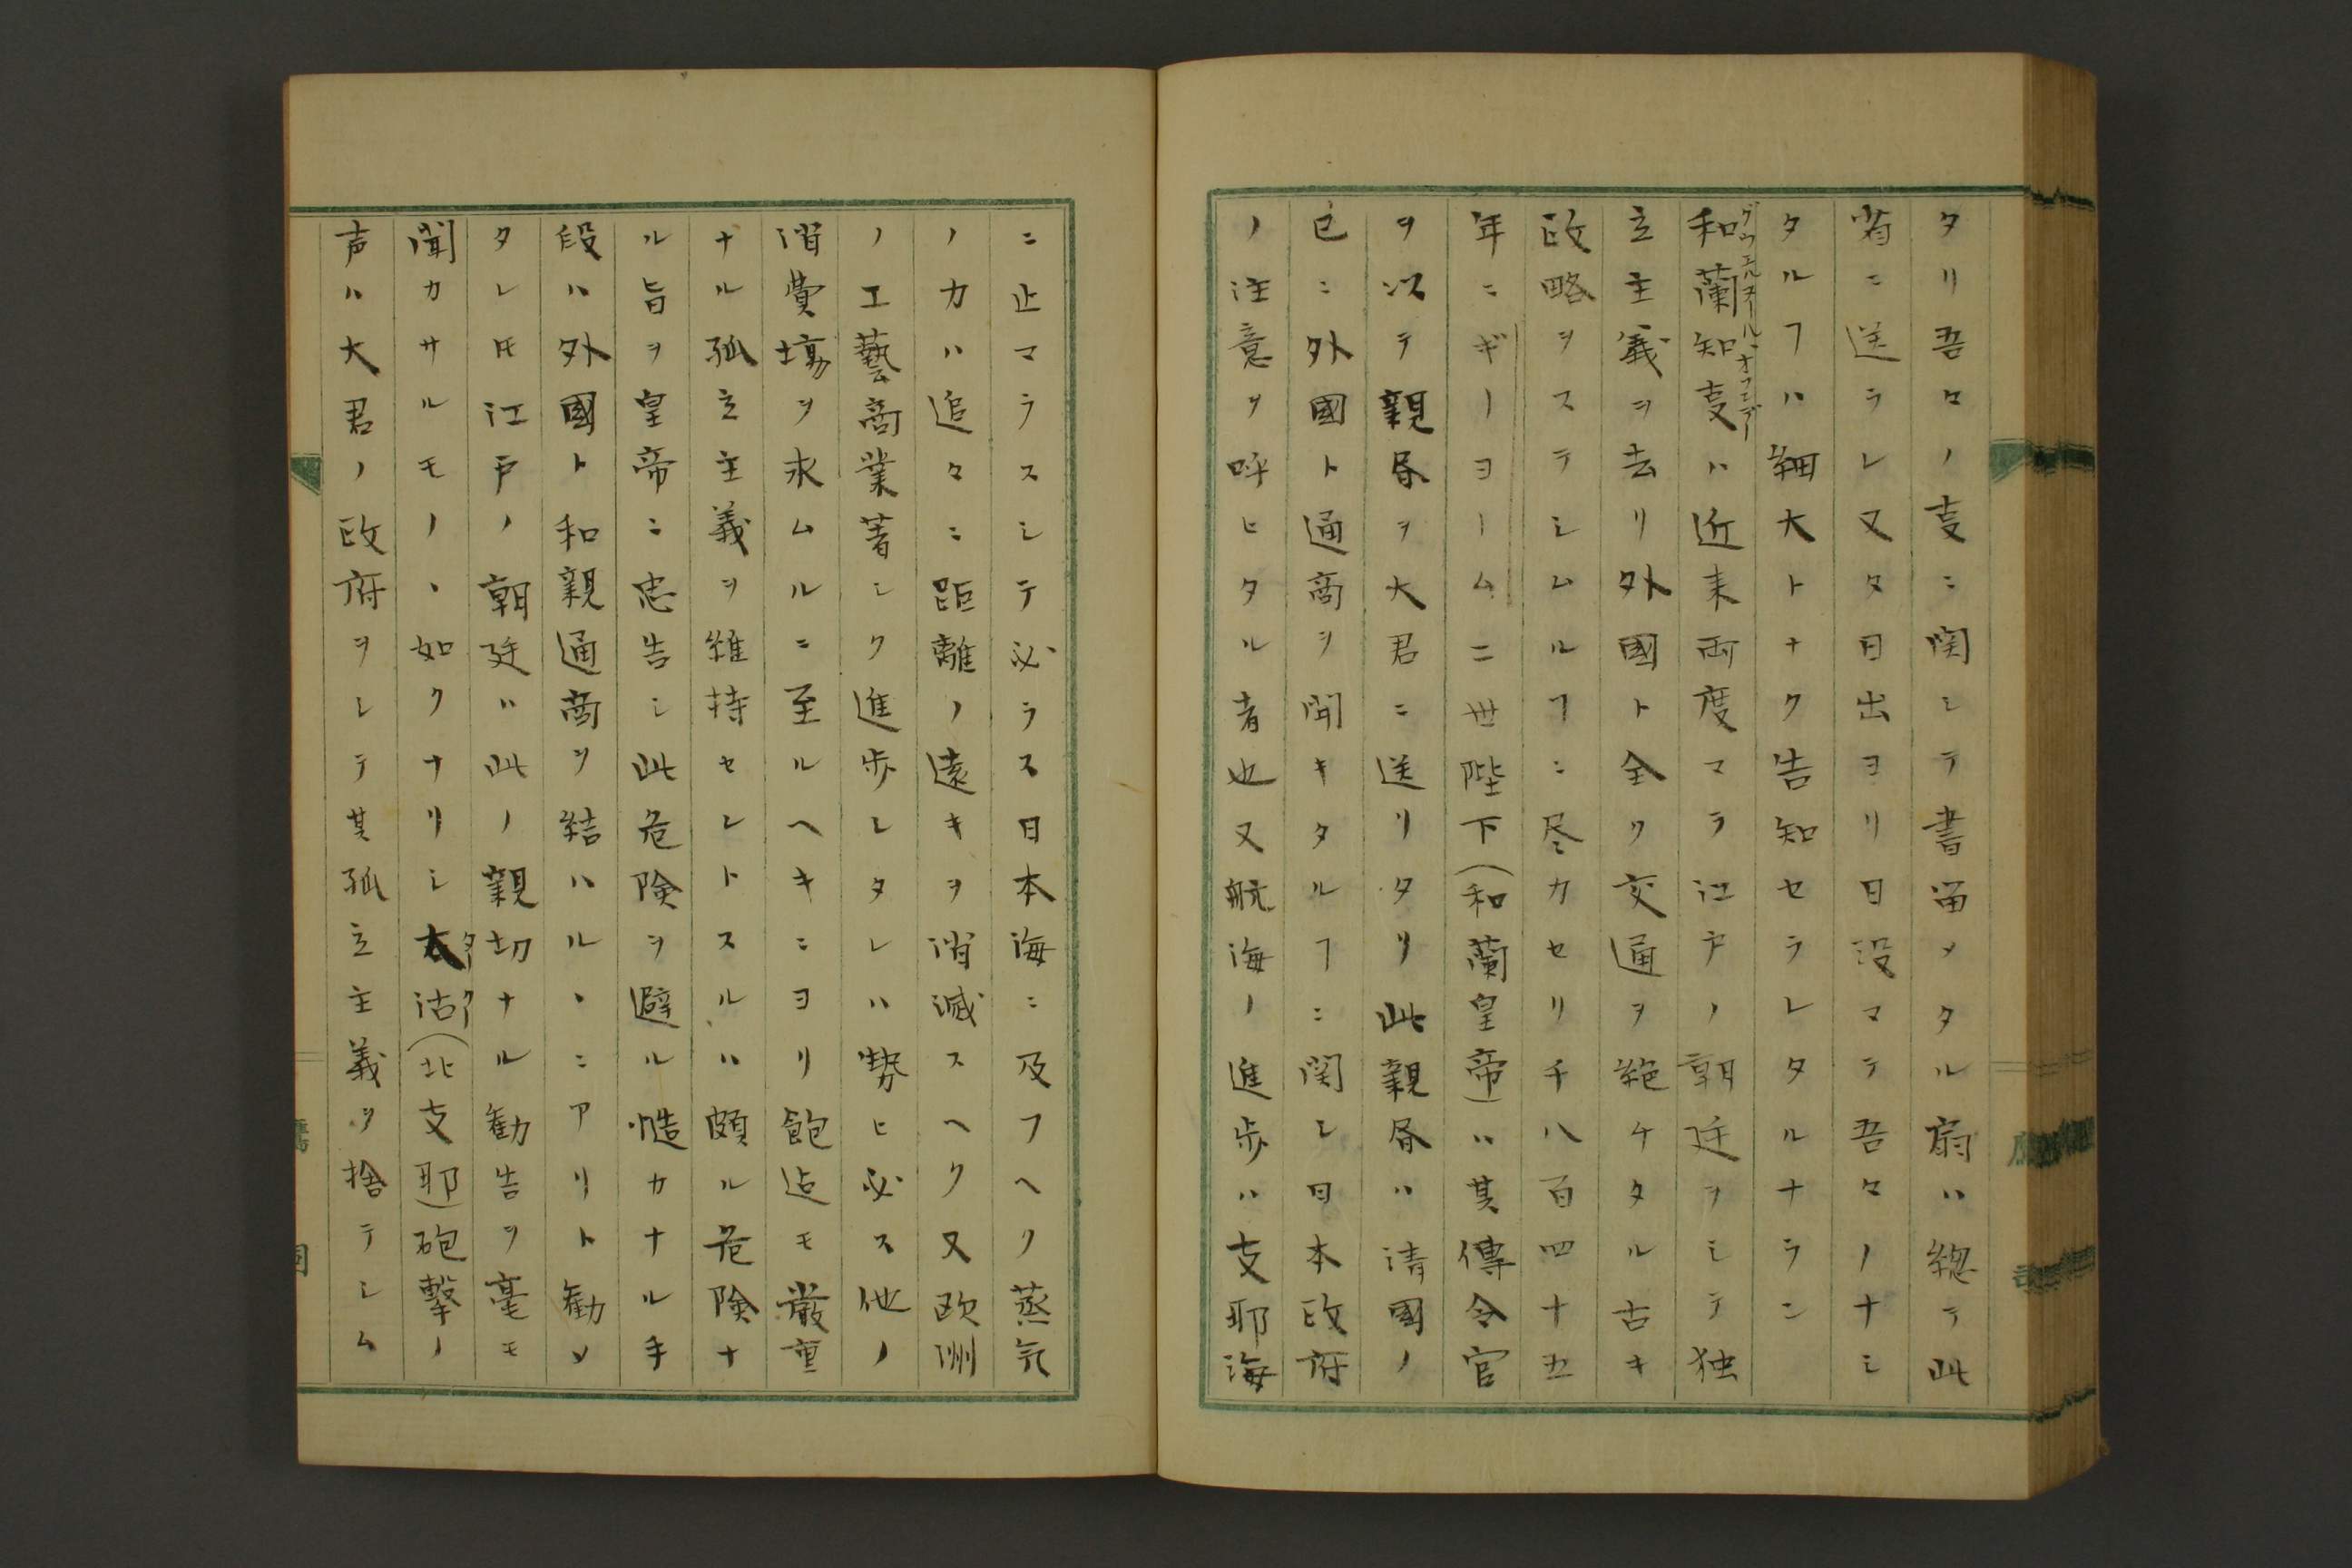 タリ吾々ノ亊ニ関シテ書畄メタル扇ハ総テ此
省ニ送ラレ又タ日出ヨリ日没マテ吾々ノナシ
タルヿハ細大トナク告知セラレタルナラン
和蘭知亊ハ近来両度マラ江戸ノ朝廷ヲシテ独
立主義ヲ去リ外國ト全ク交通ヲ絶ケタル古キ
政略ヲステシムルヿニ尽力セリ千八百四十五
年ニギーヨーム二世陛下(和蘭皇帝)ハ其傳令官
ヲ以テ親昏ヲ大君ニ送リタリ此親昏ハ清國ノ
已ニ外國ト通商ヲ開キタルヿニ関シ日本政府
ノ注意ヲ呼ヒタル者也又航海ノ進歩ハ支耶海
ニ止マラスシテ必ラス日本海ニ及フヘク蒸気
ノ力ハ追々ニ距離ノ遠キヲ消滅スヘク又欧洲
ノ工藝商業著シク進歩シタレハ勢ヒ必ス他ノ
消費塲ヲ求ムルニ至ルヘキニヨリ飽迠モ嚴重
ナル孤立主義ヲ維持セントスルハ頗ル危険ナ
ル旨ヲ皇帝ニ忠告シ此危険ヲ避ル慥カナル手
段ハ外國ト和親通商ヲ結ハルヽニアリト勧メ
タレ𪜈江戸ノ朝廷ハ此ノ親切ナル勧告ヲ毫モ
聞カサルモノヽ如クナリシ太沽(北支耶)砲撃ノ
声ハ大君ノ政府ヲシテ其孤立主義ヲ捨テシム